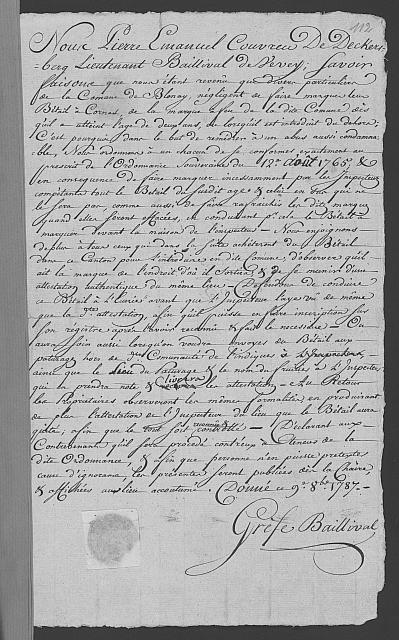 112
Nous Pierre Emanuel Couvreu De Deckers-
berg Lieutenant Baillival de Vevey; savoir
faisons que nous étant revenu que divers particuliers
de la Comune de Blonay, négligent de faire marquer leur
Bétail à Cornes, de la marque à feu de la dite Comune dès
qu'il a atteint l'age de deux ans, ou lorsqu'il est introduit du dehors;
C'est pourquoi dans le but de remédier à un abus aussi condamna-
ble, Nous ordonnons à un chacun de se conformer exactement au
prescrit de l'Ordonnance Souveraine du 12e. août 1765, &
en consequence de faire marquer incessamment par les Inspecteurs
compétants tout le Bétail du susdit age & celui en tout qui ne
le sera pas comme aussi de faire rafraichir les dites marques
quand elles seront effacées, en conduisant pr. cela le Bétail à
marquer devant la maison de l'inspecteur — Nous enjoignons
de plus à tous ceux qui dans la suite achéteront du Bétail
dans ce Canton pour l'introduire en dite Comune, d'observer qu'il
ait la marque de l'endroit d'où il sortira & de se munir d'une
attestation authentique du même lieu — Défendons de conduire
ce Bétail à l'Ecurie avant que l'Inspecteur l'aye vû de même
que la dte. attestation, afin qu'il puisse en faire inscription sur
son registre après l'avoir reconnu & fait le necessaire — On
aura soin aussi lorsqu'on voudra envoyer du Bétail aux
paturage hors de dte. Comunauté de l'indiquer à l'Inspecteur,
ainsi que le lieu du Paturage & le nom du fruitier à l'Inspecteur
qui en prendra note & livrera les attestation — Au Retour
les Propriétaires observeront les même formalités en produisant
de plus l'attestation de l'Inspecteur du lieu que le Bétail aura
quitté, afin que le tout soit reconnu & controllé — Déclarant aux
Contrevenants qu'il sera procédé contr'eux à Teneur de la
dite Ordonnance, & afin que personne n'en puisse prétexter
cause d'ignorance, les présentes seront publiées dès la Chaire
& affichées aux lieu accoutumé. Donné ce 9e. 8bre. 1787. —
Grefe Baillival